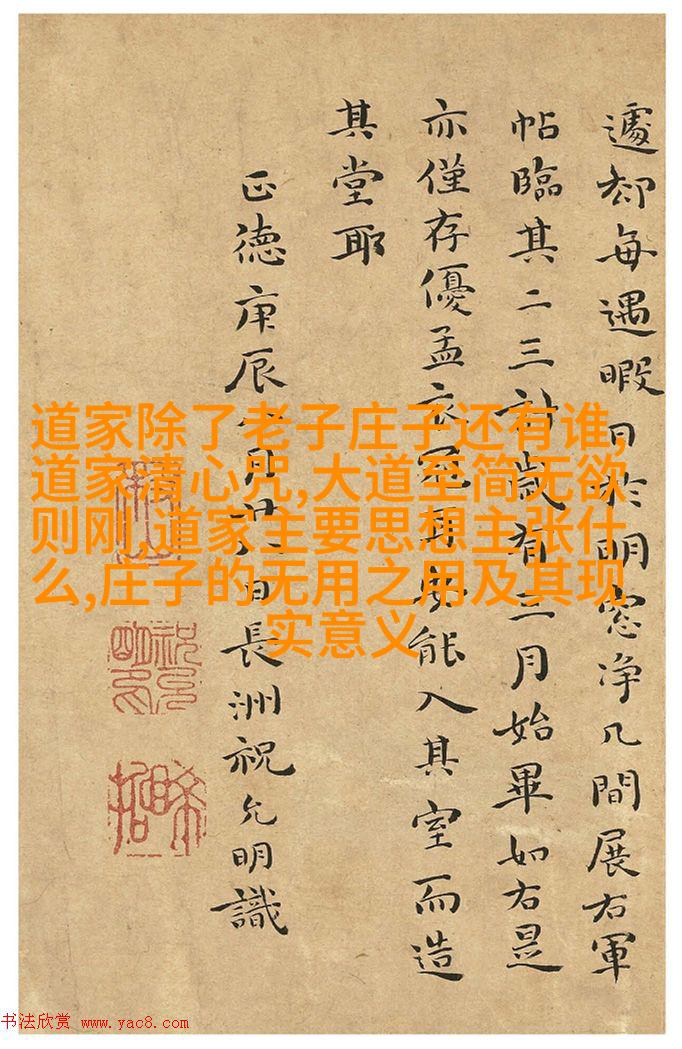 遽却每遇暇日於明窓净几間展右軍
帖臨其二三計歲有三月始畢如右是
亦僅存優孟衣冠耳安能入其室而造
其堂耶
正德庚辰月廿日長洲祝允明識
道家除了老子庄子还有谁,
道家清心咒,大道至简无欲
则刚,道家主要思想主张什
么,庄子的无用之用及其现
实意义
书法欣赏 www.yac8.com